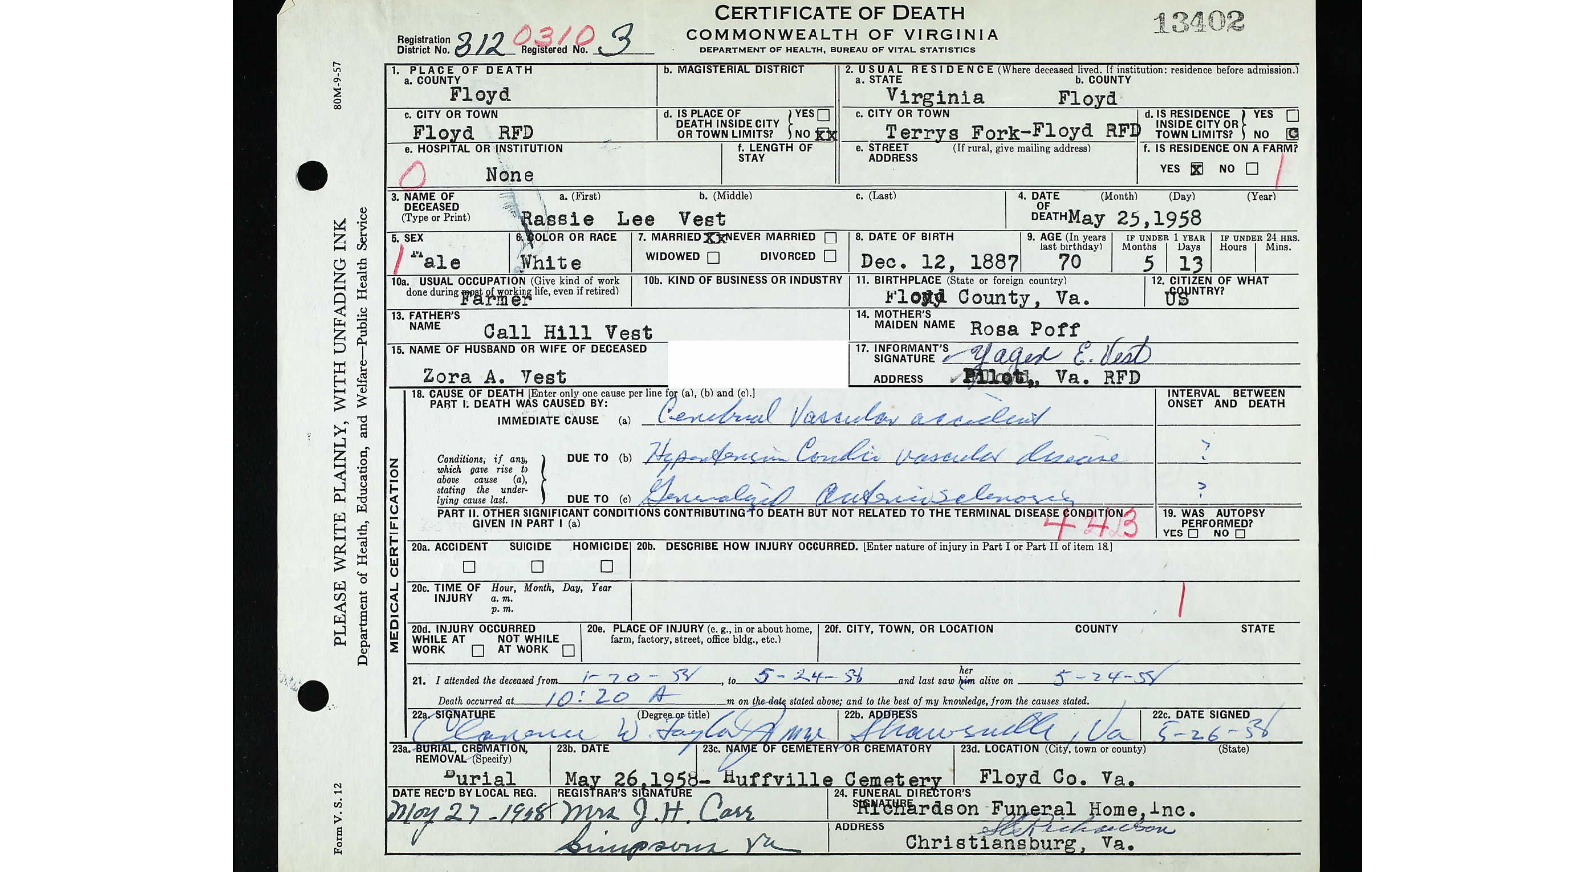 CERTIFICATE OF DEATH
COMMONWEALTH OF VIRGINIA
DEPARTMENT OF HEALTH, BUREAU OF VITAL STATISTICS
13402
Registration District No. 312 0310 Registered No. 3
80M-9-57
PLEASE WRITE PLAINLY, WITH UNFADING INK
Department of Health, Education, and Welfare—Public Health Service
Form V. S. 12
1. PLACE OF DEATH
a. COUNTY
Floyd
b. MAGISTERIAL DISTRICT
2. USUAL RESIDENCE (Where deceased lived. If institution: residence before admission.)
a. STATE
Virginia
b. COUNTY
Floyd
c. CITY OR TOWN
Floyd RFD
d. IS PLACE OF DEATH INSIDE CITY OR TOWN LIMITS? YES NO XX
c. CITY OR TOWN
Terrys Fork-Floyd RFD
d. IS RESIDENCE INSIDE CITY OR TOWN LIMITS? YES NO
e. HOSPITAL OR INSTITUTION
0 None
f. LENGTH OF STAY
e. STREET ADDRESS (If rural, give mailing address)
f. IS RESIDENCE ON A FARM?
YES X NO 1
3. NAME OF DECEASED (Type or Print)
a. (First) b. (Middle) c. (Last)
Rassie Lee Vest
4. DATE OF DEATH (Month) (Day) (Year)
May 25,1958
5. SEX
1 Male
6. COLOR OR RACE
White
7. MARRIED XX NEVER MARRIED
WIDOWED DIVORCED
8. DATE OF BIRTH
Dec. 12, 1887
9. AGE (In years last birthday)
70
IF UNDER 1 YEAR
Months Days
5 13
IF UNDER 24 HRS.
Hours Mins.
10a. USUAL OCCUPATION (Give kind of work done during most of working life, even if retired)
Farmer
10b. KIND OF BUSINESS OR INDUSTRY
11. BIRTHPLACE (State or foreign country)
Floyd County, Va.
12. CITIZEN OF WHAT COUNTRY?
US
13. FATHER'S NAME
Call Hill Vest
14. MOTHER'S MAIDEN NAME
Rosa Poff
15. NAME OF HUSBAND OR WIFE OF DECEASED
Zora A. Vest
17. INFORMANT'S SIGNATURE Yager E. Vest
ADDRESS Pilot, Va. RFD
MEDICAL CERTIFICATION
18. CAUSE OF DEATH [Enter only one cause per line for (a), (b) and (c).]
PART I. DEATH WAS CAUSED BY:
IMMEDIATE CAUSE (a) Cerebral Vascular accident
INTERVAL BETWEEN ONSET AND DEATH
Conditions, if any, which gave rise to above cause (a), stating the underlying cause last.
DUE TO (b) Hypertensive Cardio vascular disease ?
DUE TO (c) Generalized Arteriosclerosis ?
PART II. OTHER SIGNIFICANT CONDITIONS CONTRIBUTING TO DEATH BUT NOT RELATED TO THE TERMINAL DISEASE CONDITION GIVEN IN PART I (a)
443
19. WAS AUTOPSY PERFORMED?
YES NO
20a. ACCIDENT SUICIDE HOMICIDE
20b. DESCRIBE HOW INJURY OCCURRED. [Enter nature of injury in Part I or Part II of item 18.]
20c. TIME OF INJURY Hour, Month, Day, Year
a. m.
p. m.
1
20d. INJURY OCCURRED
WHILE AT WORK NOT WHILE AT WORK
20e. PLACE OF INJURY (e. g., in or about home, farm, factory, street, office bldg., etc.)
20f. CITY, TOWN, OR LOCATION COUNTY STATE
21. I attended the deceased from 1-20-58, to 5-24-58 and last saw her him alive on 5-24-58
Death occurred at 10:20 A m on the date stated above; and to the best of my knowledge, from the causes stated.
22a. SIGNATURE (Degree or title)
Clarence W. Taylor
22b. ADDRESS
Shawsville, Va
22c. DATE SIGNED
5-26-58
23a. BURIAL, CREMATION, REMOVAL (Specify)
Burial
23b. DATE
May 26,1958-
23c. NAME OF CEMETERY OR CREMATORY
Huffville Cemetery
23d. LOCATION (City, town or county) (State)
Floyd Co. Va.
DATE REC'D BY LOCAL REG.
May 27-1958
REGISTRAR'S SIGNATURE
Mrs J. H. Carr
Simpsons Va
24. FUNERAL DIRECTOR'S SIGNATURE
Richardson Funeral Home,Inc.
ADDRESS
Christiansburg, Va.